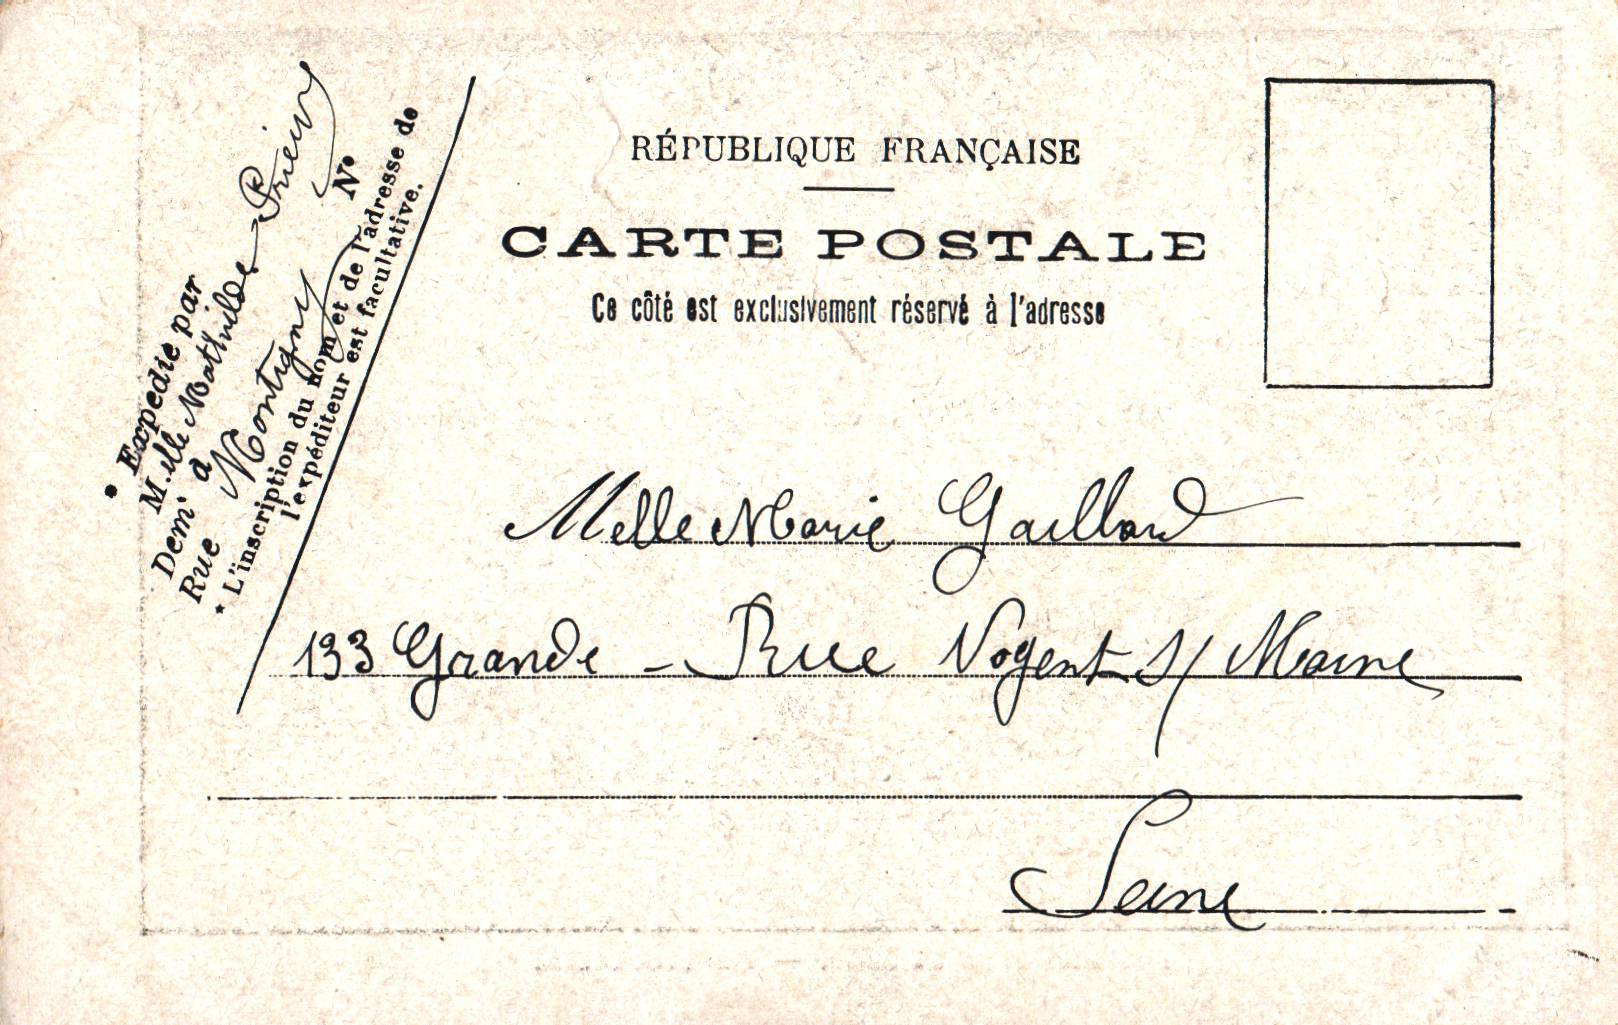 RÉPUBLIQUE FRANÇAISE
CARTE POSTALE
Ce côté est exclusivement réservé à l'adresse
* Expédié par
M.elle Mathilde Prieur
Dem.t à
Rue Montigny N°
* L'inscription du nom et de l'adresse de
l'expéditeur est facultative.
Melle Marie Gaillard
133 Grande - Rue Nogent s/ Marne
Seine